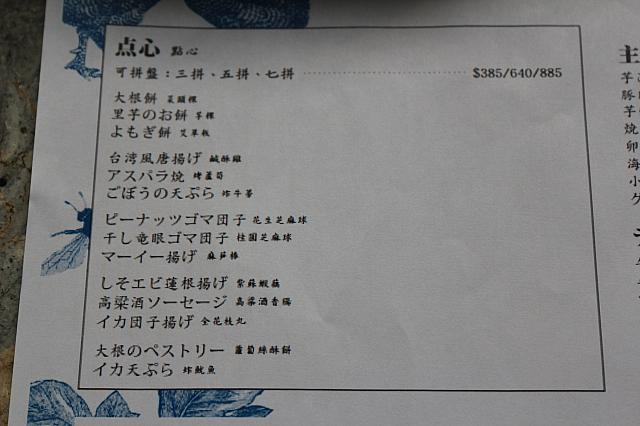 点心 點心
可拼盤：三拼、五拼、七拼 $385/640/885
大根餅 菜頭粿
里芋のお餅 芋粿
よもぎ餅 艾草粄
台湾風唐揚げ 鹹酥雞
アスパラ焼 烤蘆筍
ごぼうの天ぷら 炸牛蒡
ピーナッツゴマ団子 花生芝麻球
干し竜眼ゴマ団子 桂圓芝麻球
マーイー揚げ 麻芛棒
しそエビ蓮根揚げ 紫蘇蝦藕
高粱酒ソーセージ 高粱酒香腸
イカ団子揚げ 全花枝丸
大根のペストリー 蘿蔔絲酥餅
イカ天ぷら 炸魷魚
主
芋
豚
芋
焼
卵
海
小